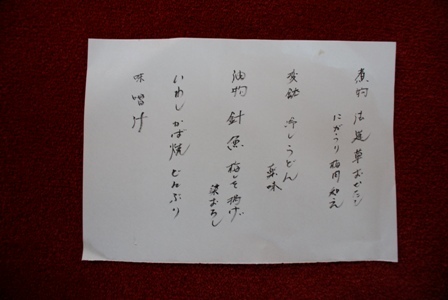 煮物 法蓮草
にがうり梅肉和え
変鉢 冷しうどん
薬味
油物 針魚 梅しそ揚げ
染おろし
いわしかば焼どんぶり
味噌汁